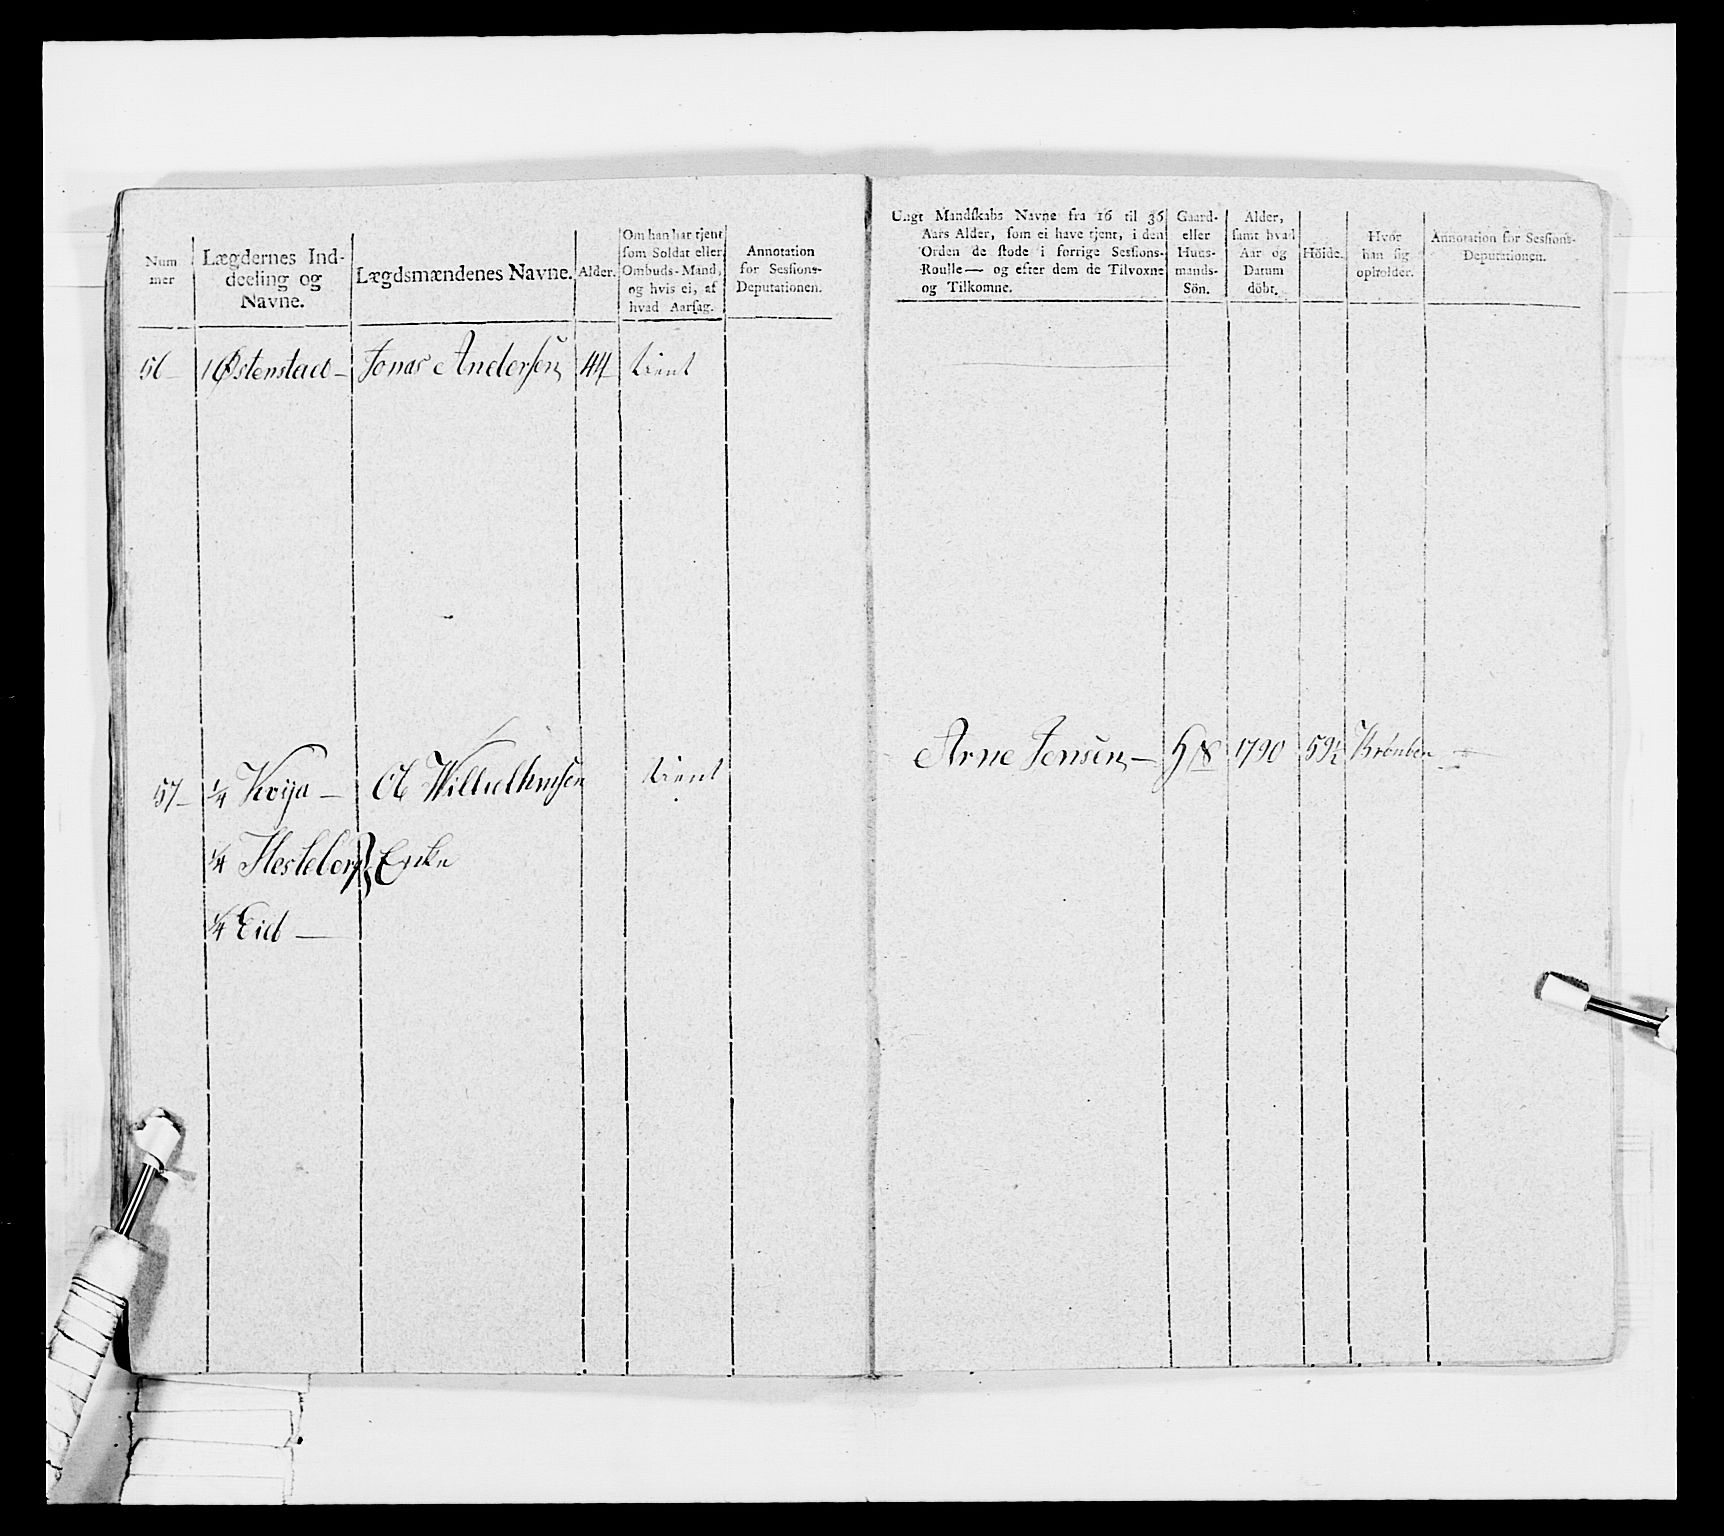 Num
mer
Lægdernes Ind-
deeling og
Navne.
Lægdsmændenes Navne.
Alder.
Om han har tjent
som Soldat eller
Ombuds-Mand,
og hvis ei, af
hvad Aarsag.
Annotation
for Sessions-
Deputationen.
56 Østenstad Jonas Andersen 44 tient
57 1/4 Ole Wilhelmsen tient
1/4 Hesteberg Enke
1/4 Eid
Ungt Mandskabs Navne fra 16 til 36
Aars Alder, som ei have tjent, i den
Orden de stode i forrige Sessions-
Roulle — og efter dem de Tilvoxne
og Tilkomne.
Gaard-
eller
Huus-
mands-
Sön.
Alder,
samt hvad
Aar og
Datum
döbt.
Höide.
Hvor
han sig
opholder.
Annotation for Sessions-
Deputationen.
Arne Jensen 1790 59½